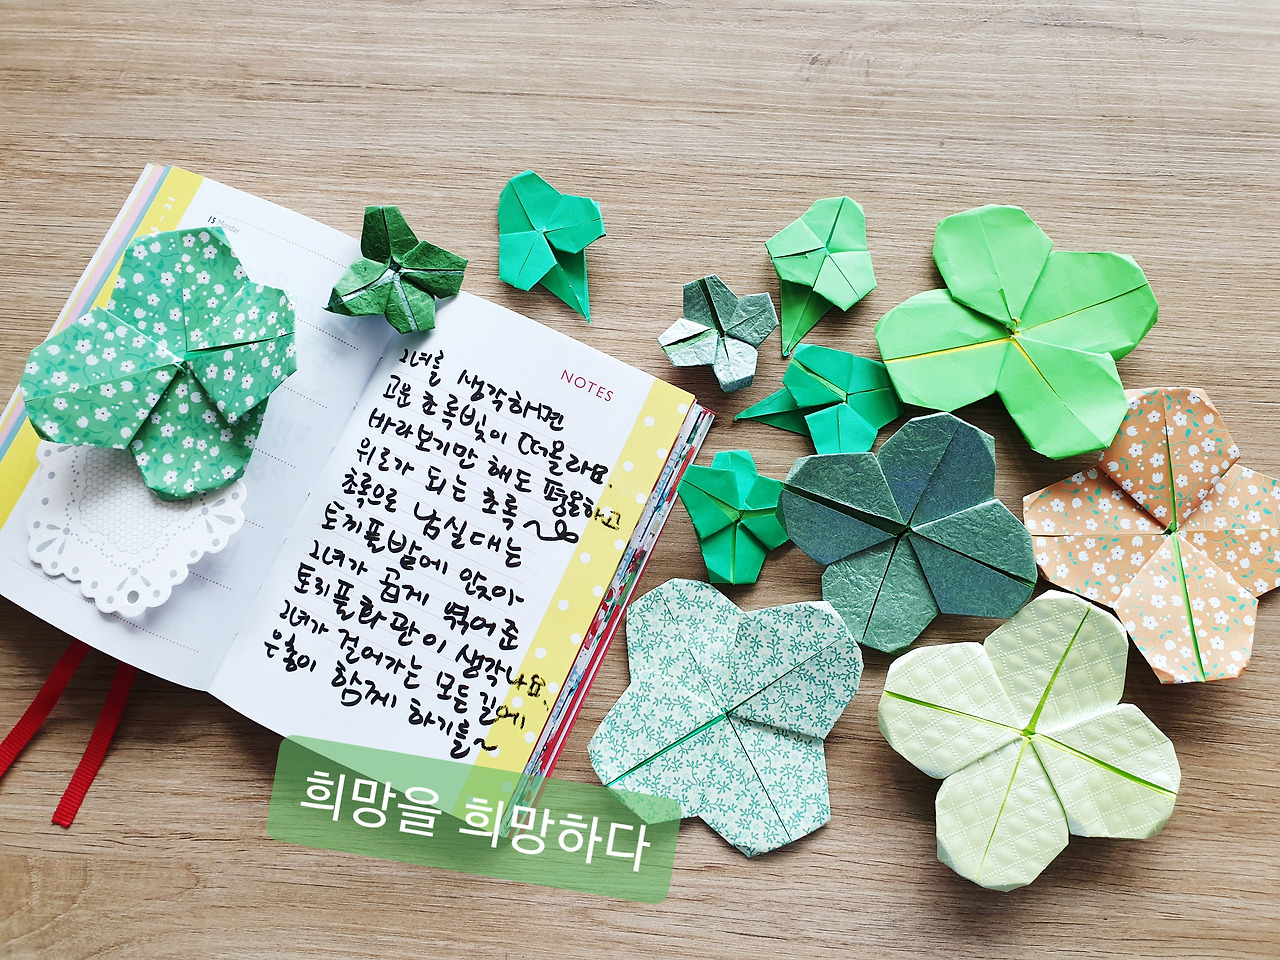 15 Monday
NOTES
그녀를 생각하면
고운 초록빛이 떠올라요.
바라보기만 해도 평온하고
위로가 되는 초록~
초록으로 넘실대는
토끼풀밭에 앉아
그녀가 곱게 엮어준
토끼풀화관이 생각나요.
그녀가 걸어가는 모든길에
은총이 함께 하기를~
희망을 희망하다